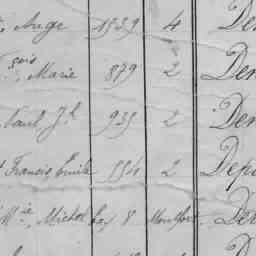 Ange 1539 4 De
Fçois Marie 879 2 Den
Paul Jh 935 2 Den
Francis Emile 554 2 Depo
Mie Michel 8 Montfort Der